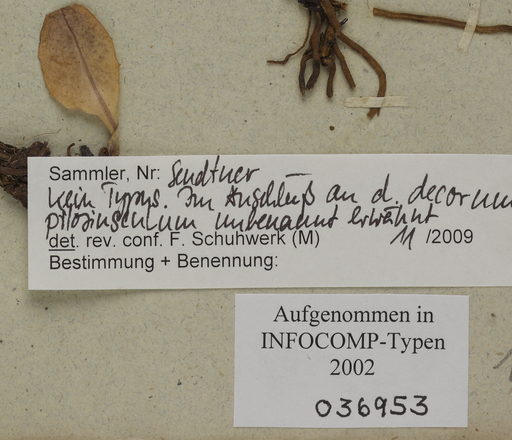 Sammler, Nr: Sendtner
Kein Typus. Im Anschluß an d. decorum
pilosiusculum unbenannt erwähnt
det. rev. conf. F. Schuhwerk (M) 11 /2009
Bestimmung + Benennung:
Aufgenommen in
INFOCOMP-Typen
2002
036953